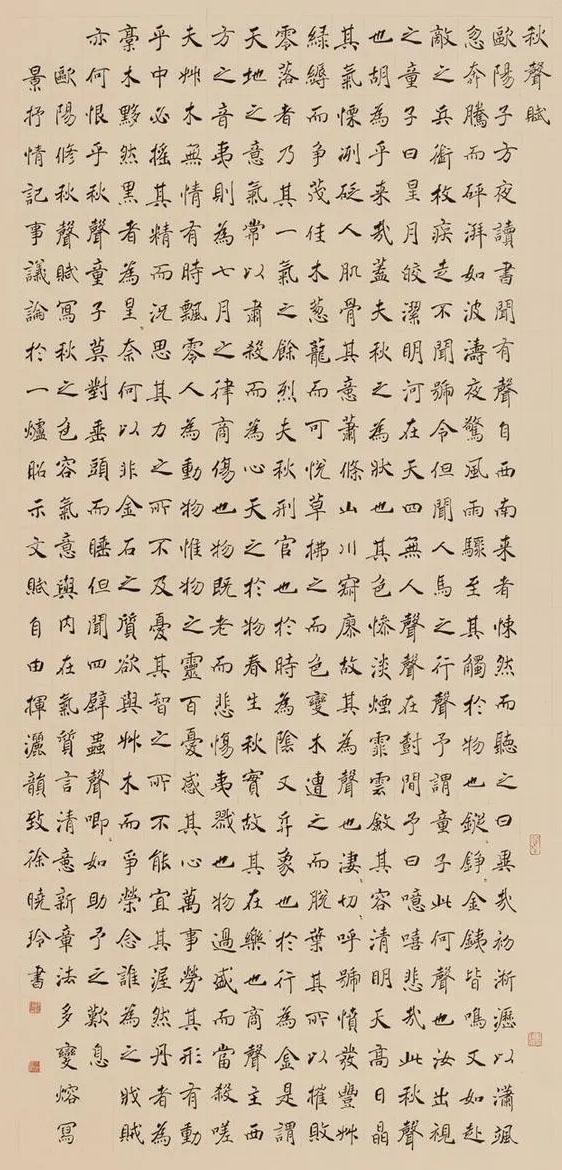 秋聲賦
歐陽子方夜讀書聞有聲自西南来者悚然而聽之曰異哉初淅瀝以瀟颯
忽奔騰而砰湃如波濤夜驚風雨驟至其觸於物也鏦錚金鐵皆鳴又如赴
敵之兵銜枚疾走不聞號令但聞人馬之行聲予謂童子此何聲也汝出視
之童子曰星月皎潔明河在天四無人聲聲在樹間予曰噫嘻悲哉此秋聲
也胡為乎来哉蓋夫秋之為狀也其色慘淡煙霏雲斂其容清明天高日晶
其氣慄冽砭人肌骨其意蕭條山川寂廖故其為聲也凄切呼號憤發豐艸
緑縟而争茂佳木葱蘢而可悅草拂之而色變木遭之而脫葉其所以摧敗
零落者乃其一氣之餘烈夫秋刑官也於時為陰又兵象也於行為金是謂
天地之意氣常以肅殺而為心天之於物春生秋實故其在樂也商聲主西
方之音夷則為七月之律商傷也物既老而悲傷夷戮也物過盛而當殺嗟
夫艸木無情有時飄零人為動物惟物之靈百憂感其心萬事勞其形有動
乎中必摇其精而況思其力之所不及憂其智之所不能宜其渥然丹者為
槁木黟然黑者為星奈何以非金石之質欲與艸木而爭榮念誰為之戕賊
亦何恨乎秋聲童子莫對垂頭而睡但聞四壁蟲聲唧如助予之歎息
歐陽修秋聲賦寫秋之色容氣意與内在氣質言清意新章法多變熔寫
景抒情記事議論於一爐昭示文賦自由揮灑韻致徐曉玲書